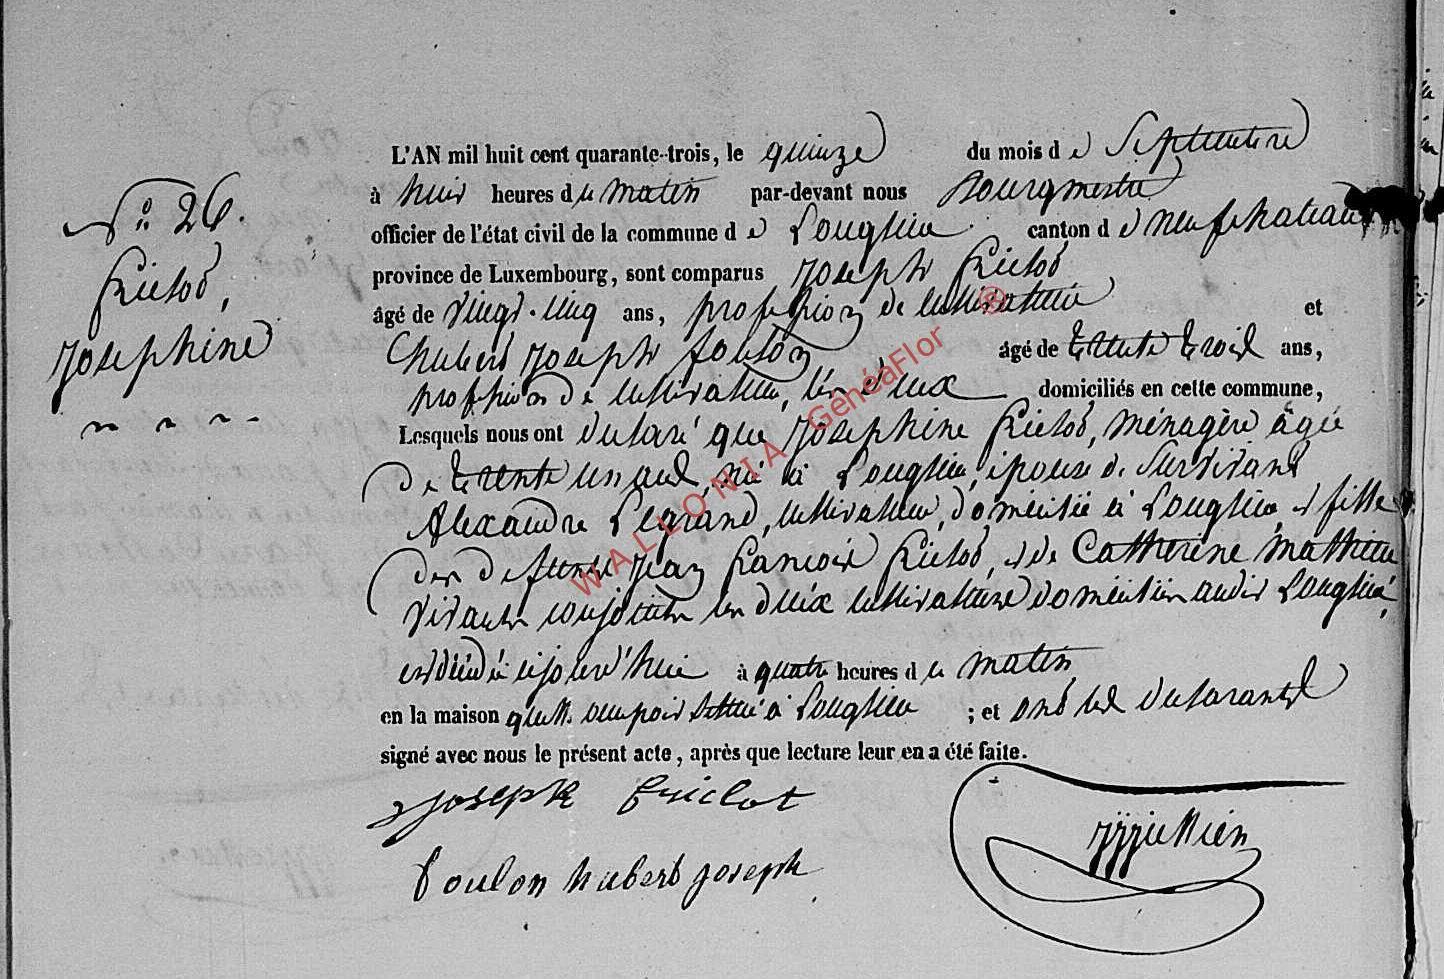 L'AN mil huit cent quarante-trois, le quinze du mois de Septembre
à huit heures du matin par-devant nous Bourgmestre
officier de l'état civil de la commune de Longlier canton de neufchateau
province de Luxembourg, sont comparus Joseph
âgé de vingt-cinq ans, profession de cultivateur et
hubert Joseph foulon âgé de trente trois ans,
profession de cultivateur, les deux domiciliés en cette commune,
Lesquels nous ont déclaré que Josephine ménagère âgée
de trente un ans, née à Longlier, épouse de survivant
Alexandre Legrand, cultivateur, domicilié à Longlier, et fille
des defunts Jean francois et de Catherine Mathieu
vivants conjoints les deux cultivateurs domiciliés audit Longlier,
est décédée cejourd'hui à quatre heures du matin
en la maison quelle occupoit située à Longlier ; et ont les déclarants
signé avec nous le présent acte, après que lecture leur en a été faite.
N° 26.
Josephine
Joseph
foulon hubert joseph
WALLONIA GénéaFlor ®